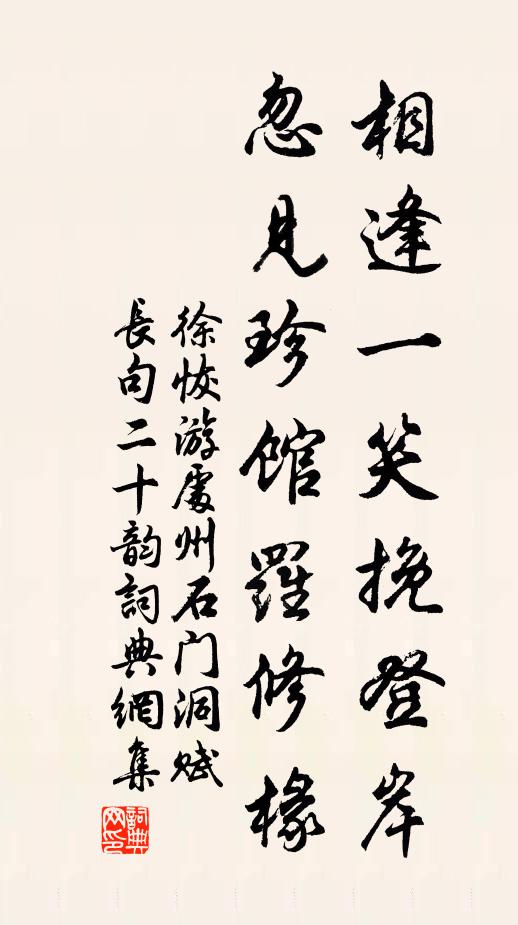 相逢一笑挽登岸
忽见珍馆羅修椽
徐恢游處州石门洞赋
長句二十韵詞典網集
詞典網印